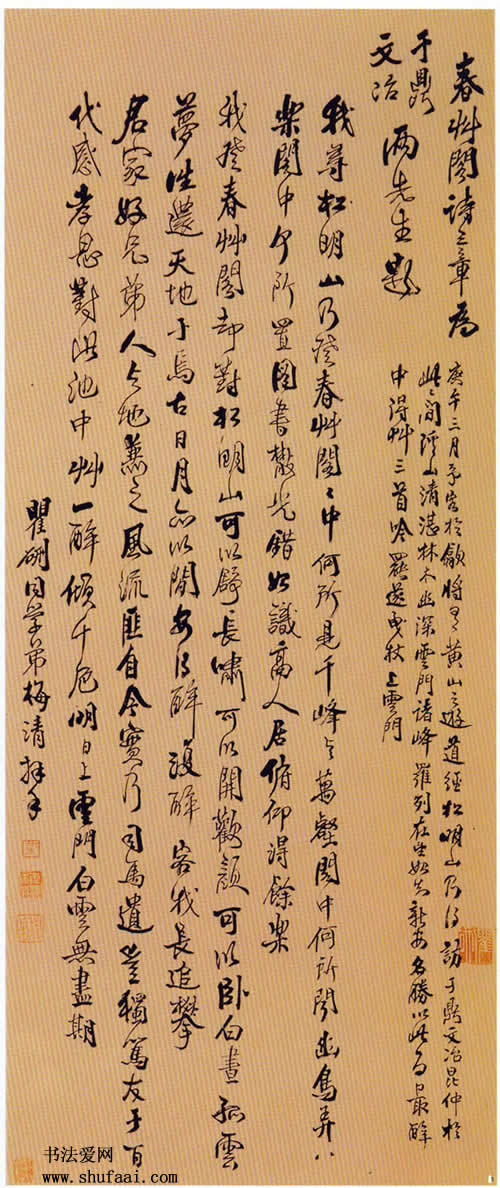 春艸閣詩三章為
于鼎
文冶
兩先生題
庚午三月予客於歙將有黃山之遊道經松明山乃得訪于鼎文冶昆仲於
此間溪山清湛林木幽深雲門諸峰羅列在坐如新安名勝以此為最醉
中得艸三首吟罷遂曳杖上雲門
我尋松明山乃登春艸閣〻中何所見千峰與萬壑閣中何所聞幽鳥弄八
樂閣中何所置圖書散光錯如識高人居俯仰得餘樂
我登春艸閣却對松明山可以舒長嘯可以開歡顏可以臥白晝孤雲
夢往還天地于焉古日月亦以閒安得醉復醉容我長追攀
君家好兄弟人與地兼之風流匪自今實乃司馬遺豈獨篤友于百
代感孝思對此池中艸一醉傾千卮明日上雲門白雲無盡期
瞿硎同學弟梅清拜手
书法爱网
www.shufaai.com